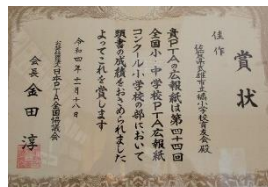 賞状
佳作
佐賀県武雄市立橘小学校育友会殿
貴PTAの広報紙は第四十四回
全国小・中学校PTA広報紙
コンクール小学校の部において
頭書の成績をおさめられました
よってこれを賞します
令和四年十一月十八日
公益社団法人日本PTA全国協議会
会長 金田 淳